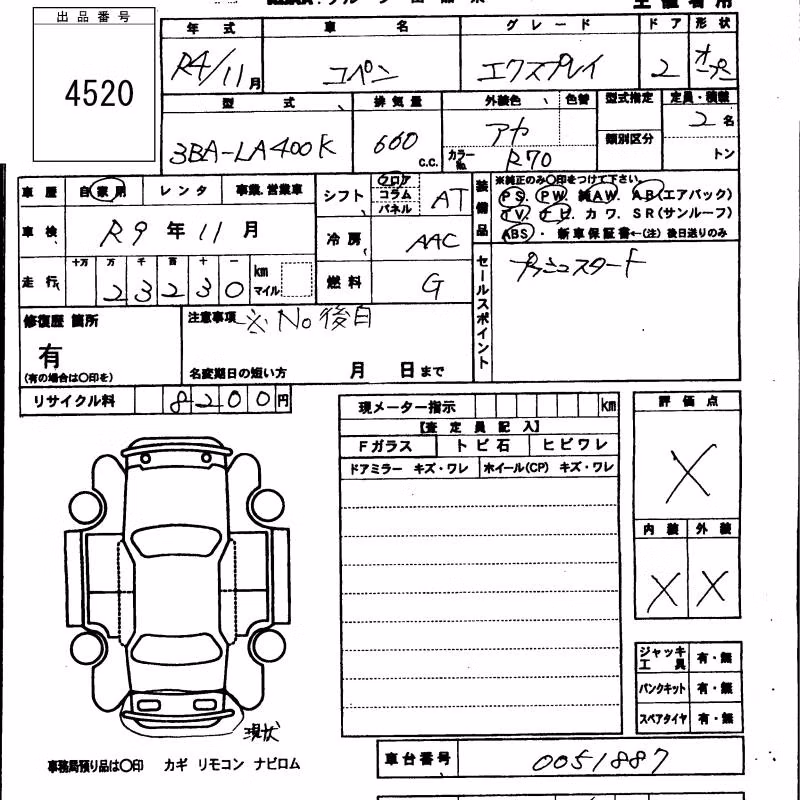 出品番号
4520
年式 車名 グレード ドア 形状
R4/11月 コペン エクスプレイ 2 オープン
型式 排気量 外装色 色替 型式指定 定員・積載
3BA-LA400K 660 c.c. アカ 類別区分 2名
カラーNo. R70 トン
車歴 自家用 レンタ 事業.営業車 シフト フロア コラム パネル AT
装備品 ※純正のみ〇印をつけて下さい。
PS. PW. 純AW. AB(エアバック)
TV. ナビ. カワ. SR(サンルーフ)
ABS・ 新車保証書←(注)後日送りのみ
車検 R9年11月 冷房 AAC
走行 十万 万 千 百 十 一
23230 km マイル 燃料 G
セールスポイント プッシュスタート
修復歴 箇所
有
(有の場合は〇印を)
注意事項 ※No後日
名変期日の短い方 月 日まで
リサイクル料 8200円
現メーター指示 km
【査定員記入】
Fガラス トビ石 ヒビワレ
ドアミラー キズ・ワレ ホイール(CP) キズ・ワレ
評価点
X
内装 外装
X X
ジャッキ工具 有・無
パンクキット 有・無
スペアタイヤ 有・無
現状
事務局預り品は〇印 カギ リモコン ナビロム
車台番号 0051887